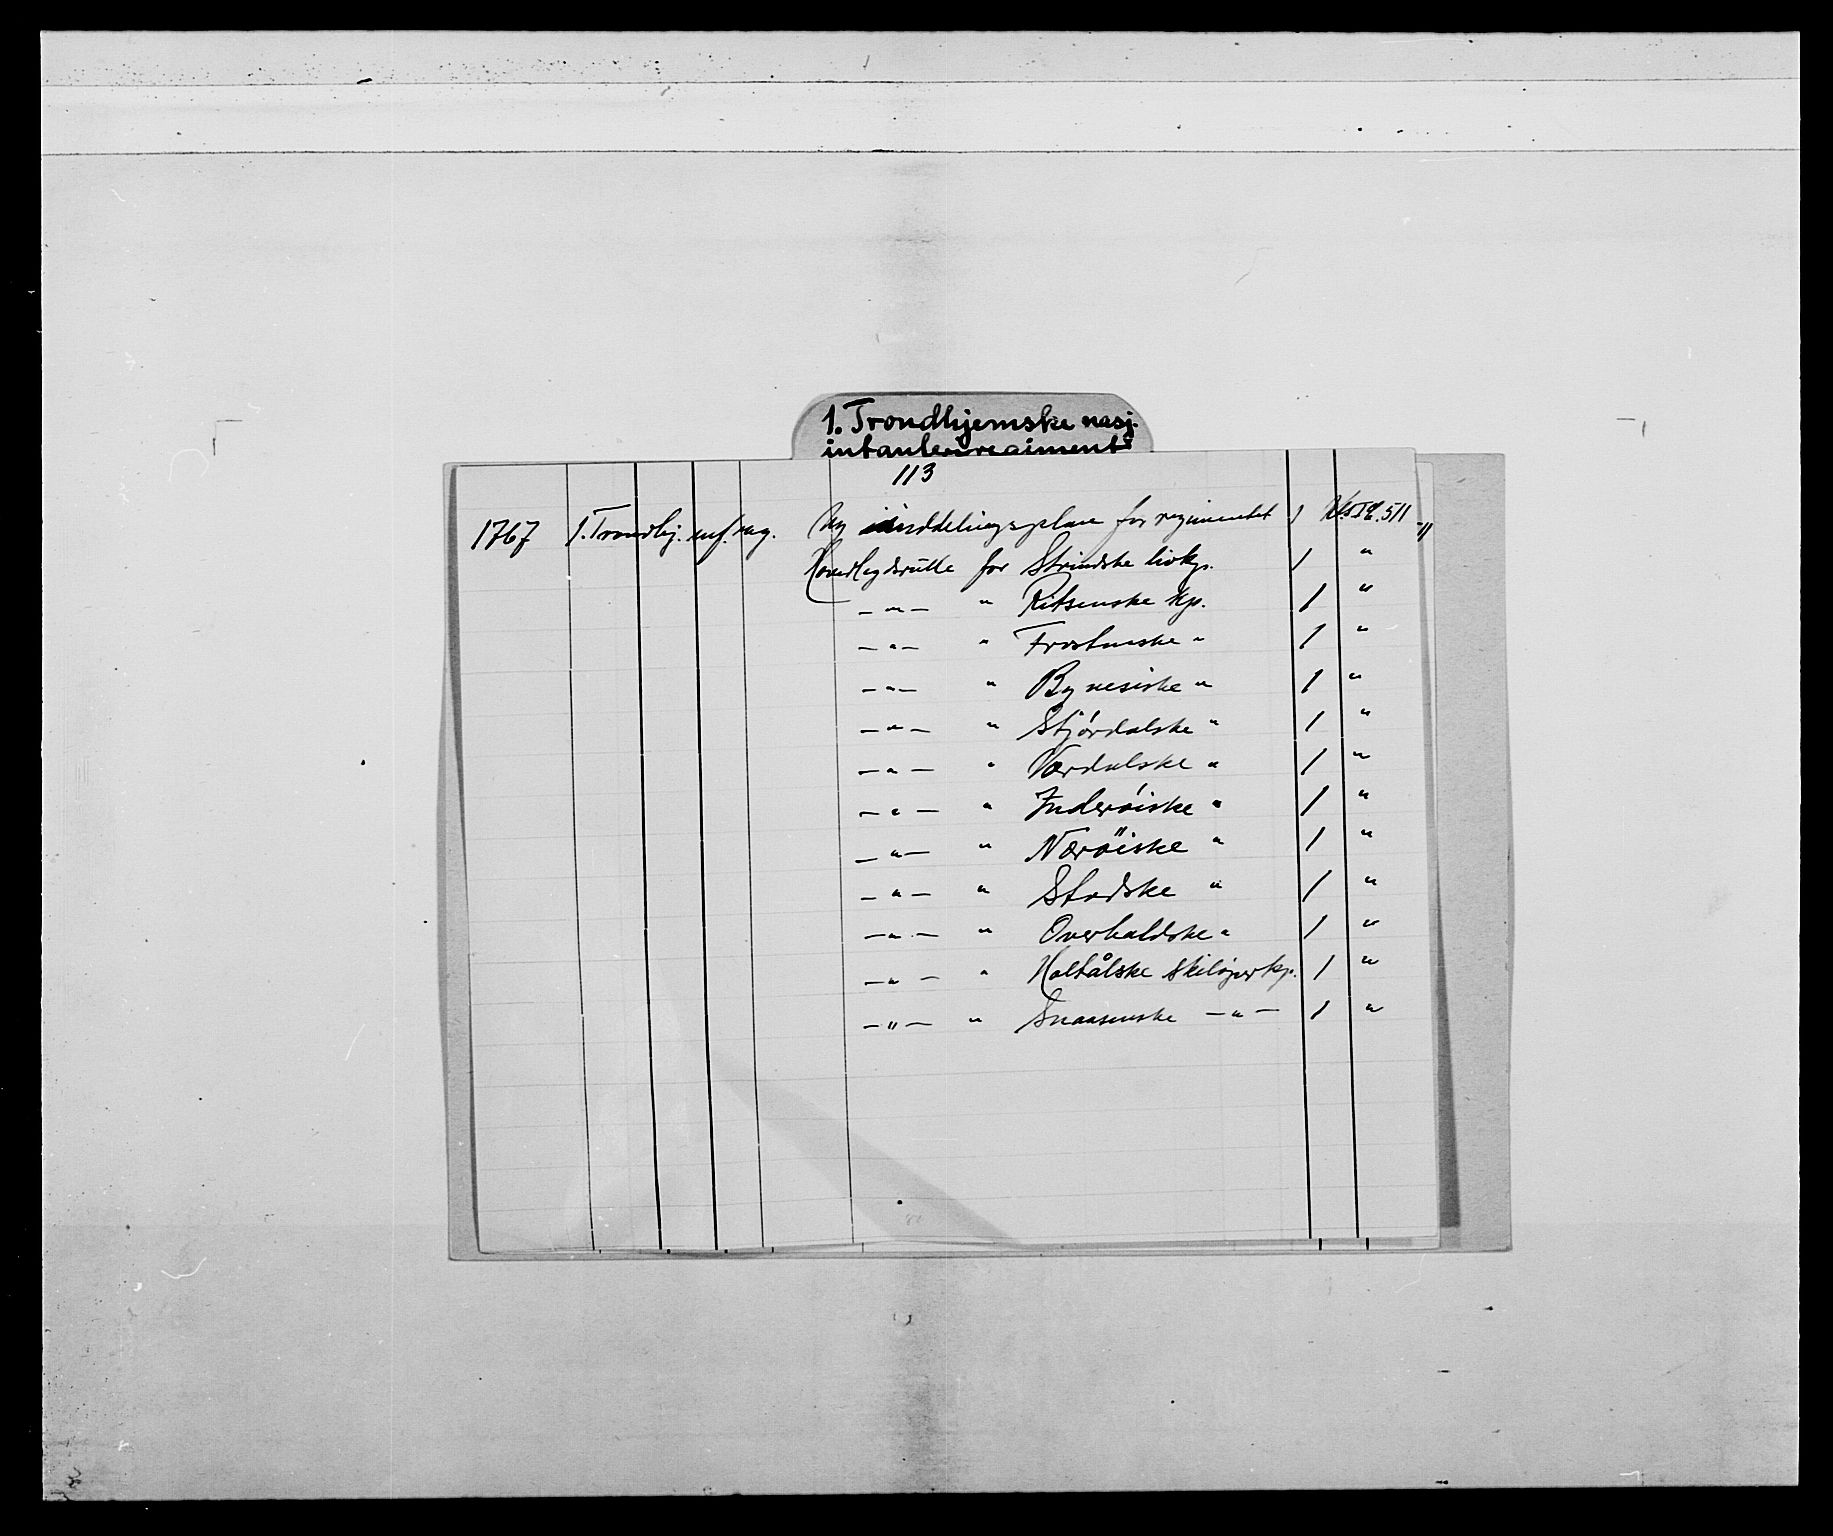 1. Trondhjemske nasj.
infanteriregiment
113
1767 1. Trondhj. inf. reg. Ny inddelingsplan for regimentet 1 511
Hovedlegdsrulle for Strindske livkp. 1 "
— " — " Ritsenske kp. 1 "
— " — " Frostenske " 1 "
— " — " Bynesiske " 1 "
— " — " Stjørdalske " 1 "
— " — " Værdalske " 1 "
— " — " Inderöiske " 1 "
— " — " Nærøiske " 1 "
— " — " Stodske " 1 "
— " — " Overhaldske " 1 "
— " — " Holtålske skiløperkp. 1 "
— " — " Snaasenske — " — 1 "